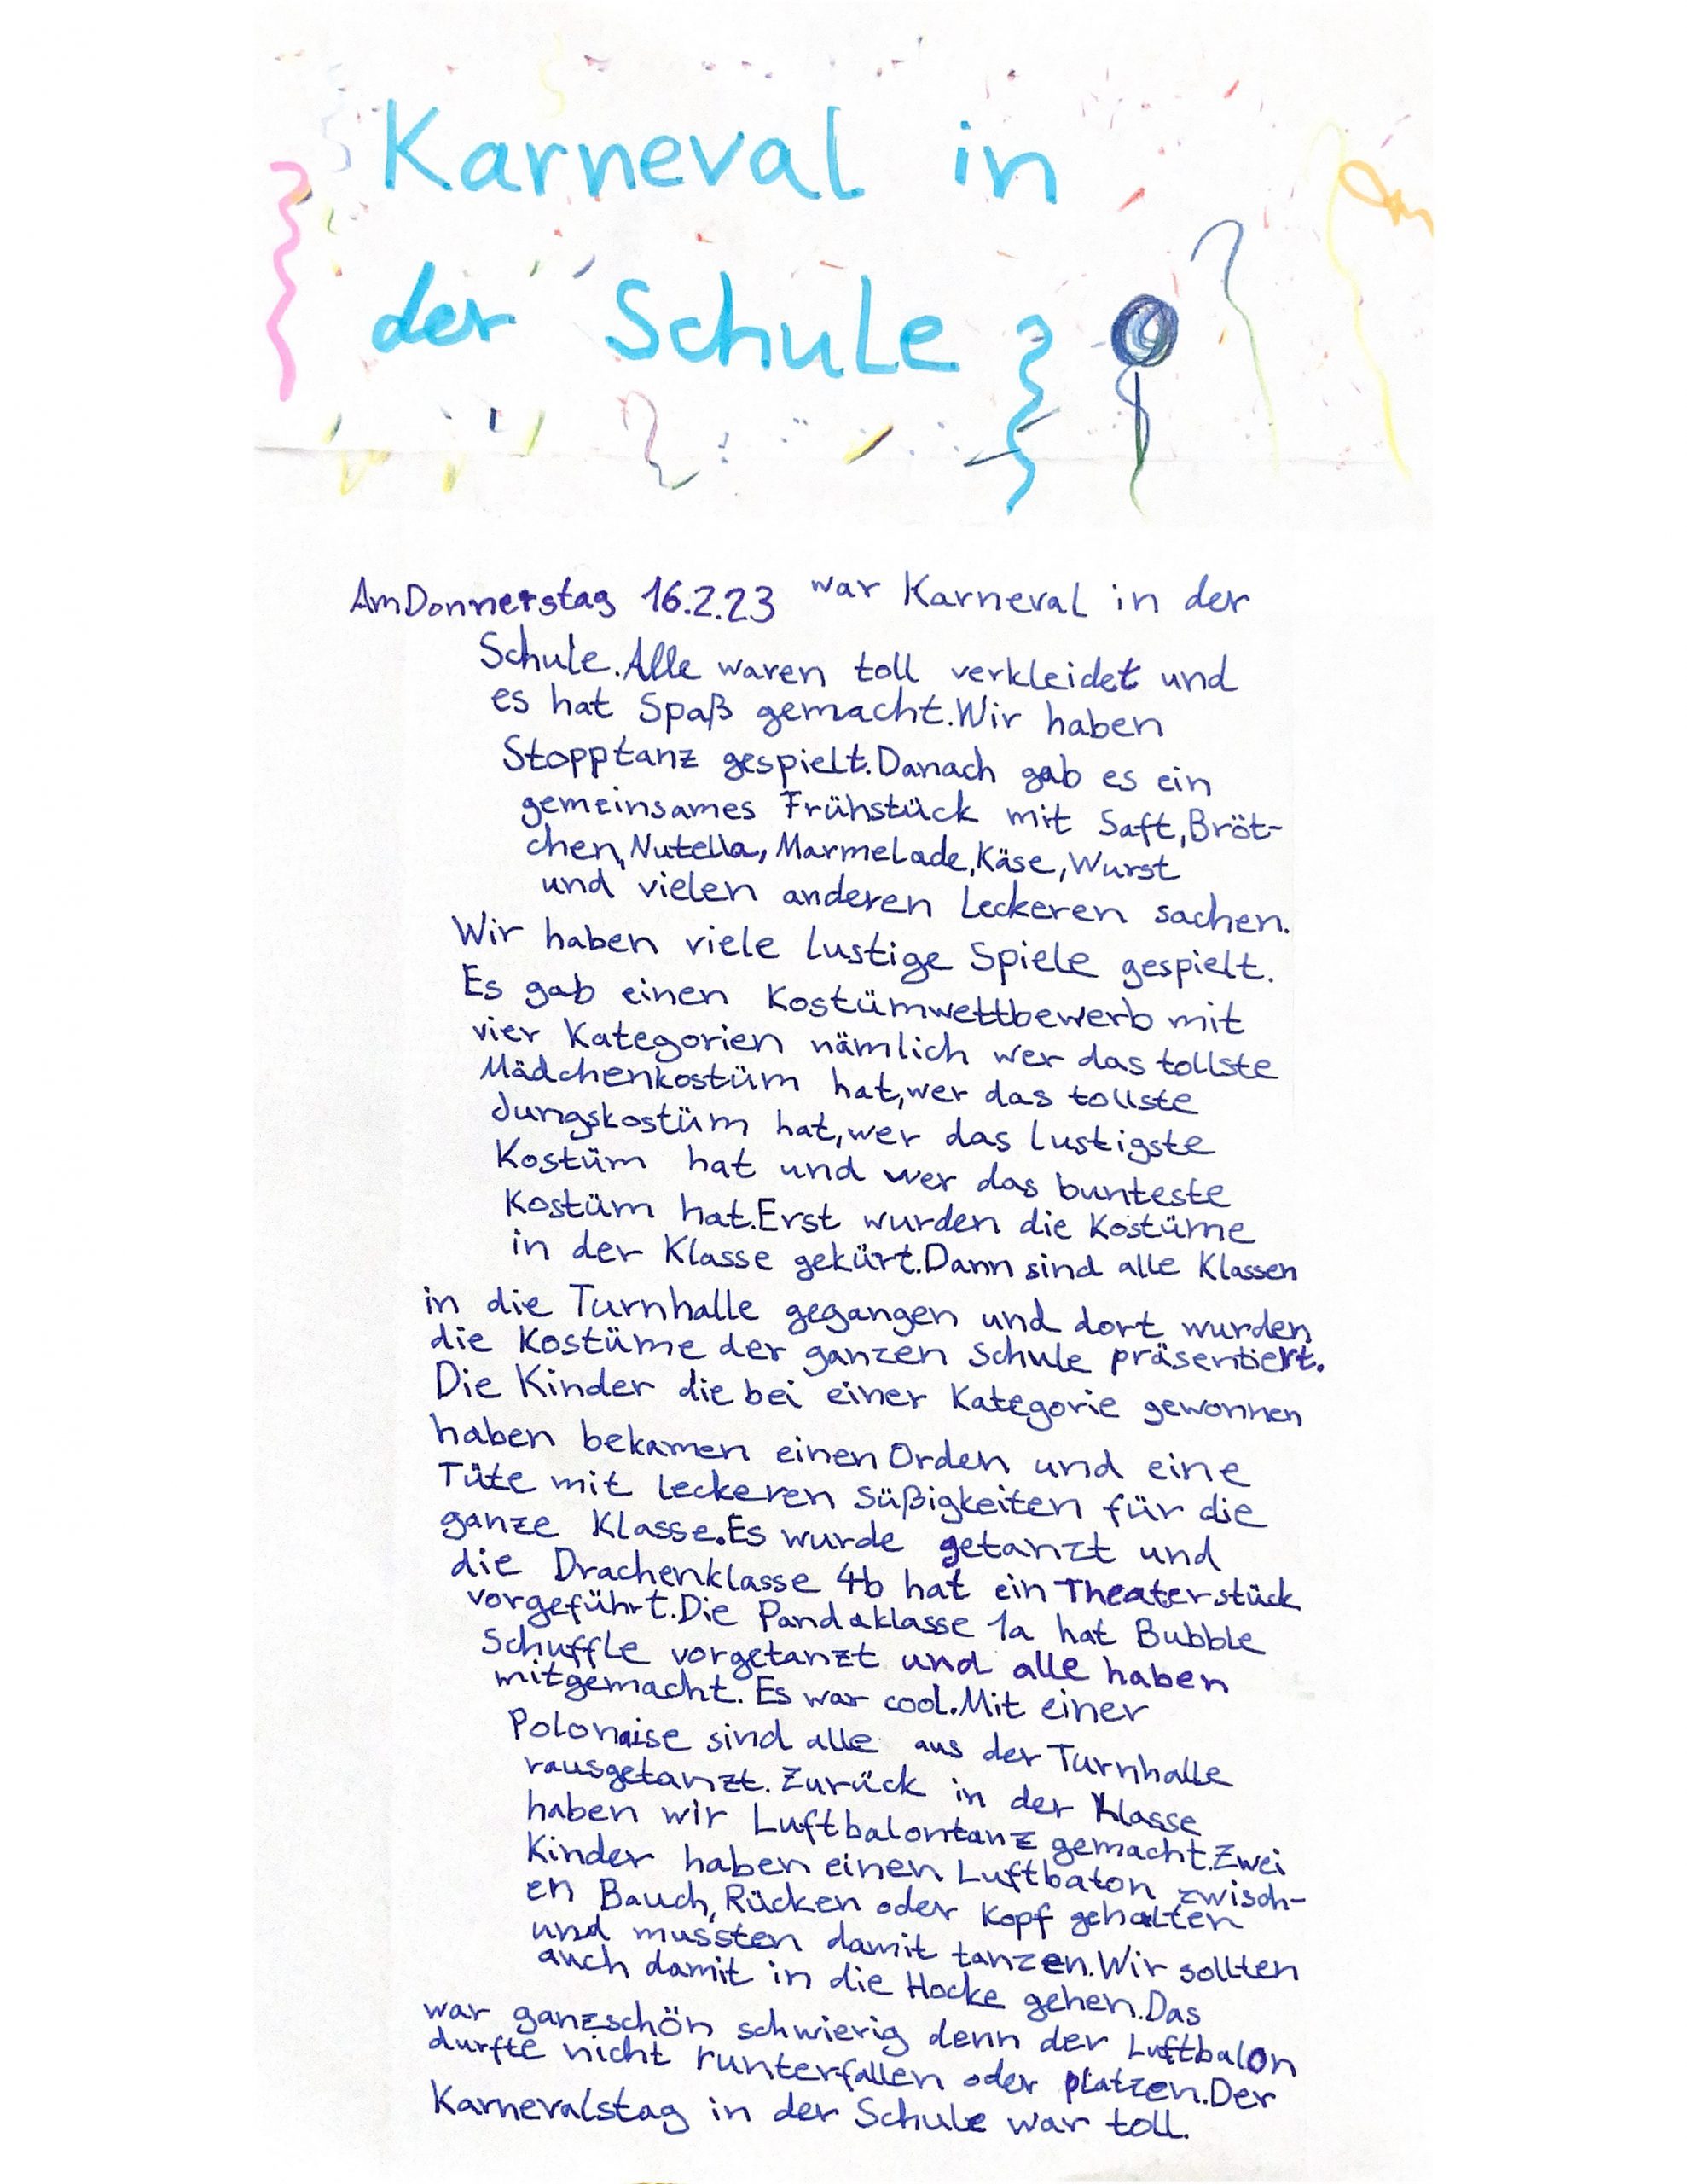 Karneval in
der Schule
Am Donnerstag 16.2.23 war Karneval in der
Schule. Alle waren toll verkleidet und
es hat Spaß gemacht. Wir haben
Stopptanz gespielt. Danach gab es ein
gemeinsames Frühstück mit Saft, Bröt-
chen, Nutella, Marmelade, Käse, Wurst
und vielen anderen Leckeren sachen.
Wir haben viele lustige Spiele gespielt.
Es gab einen Kostümwettbewerb mit
vier Kategorien nämlich wer das tollste
Mädchenkostüm hat, wer das tollste
Jungskostüm hat, wer das lustigste
Kostüm hat und wer das bunteste
Kostüm hat. Erst wurden die Kostüme
in der Klasse gekürt. Dann sind alle Klassen
in die Turnhalle gegangen und dort wurden
die Kostüme der ganzen Schule präsentiert.
Die Kinder die bei einer Kategorie gewonnen
haben bekamen einen Orden und eine
Tüte mit leckeren Süßigkeiten für die
ganze Klasse. Es wurde getanzt und
die Drachenklasse 4b hat ein Theaterstück
vorgeführt. Die Pandaklasse 1a hat Bubble
Schuffle vorgetanzt und alle haben
mitgemacht. Es war cool. Mit einer
Polonaise sind alle aus der Turnhalle
rausgetanzt. Zurück in der Klasse
haben wir Luftbalontanz gemacht. Zwei
Kinder haben einen Luftbalon zwisch-
en Bauch, Rücken oder Kopf gehalten
und mussten damit tanzen. Wir sollten
auch damit in die Hocke gehen. Das
war ganzschön schwierig denn der Luftbalon
durfte nicht runterfallen oder platzen. Der
Karnevalstag in der Schule war toll.